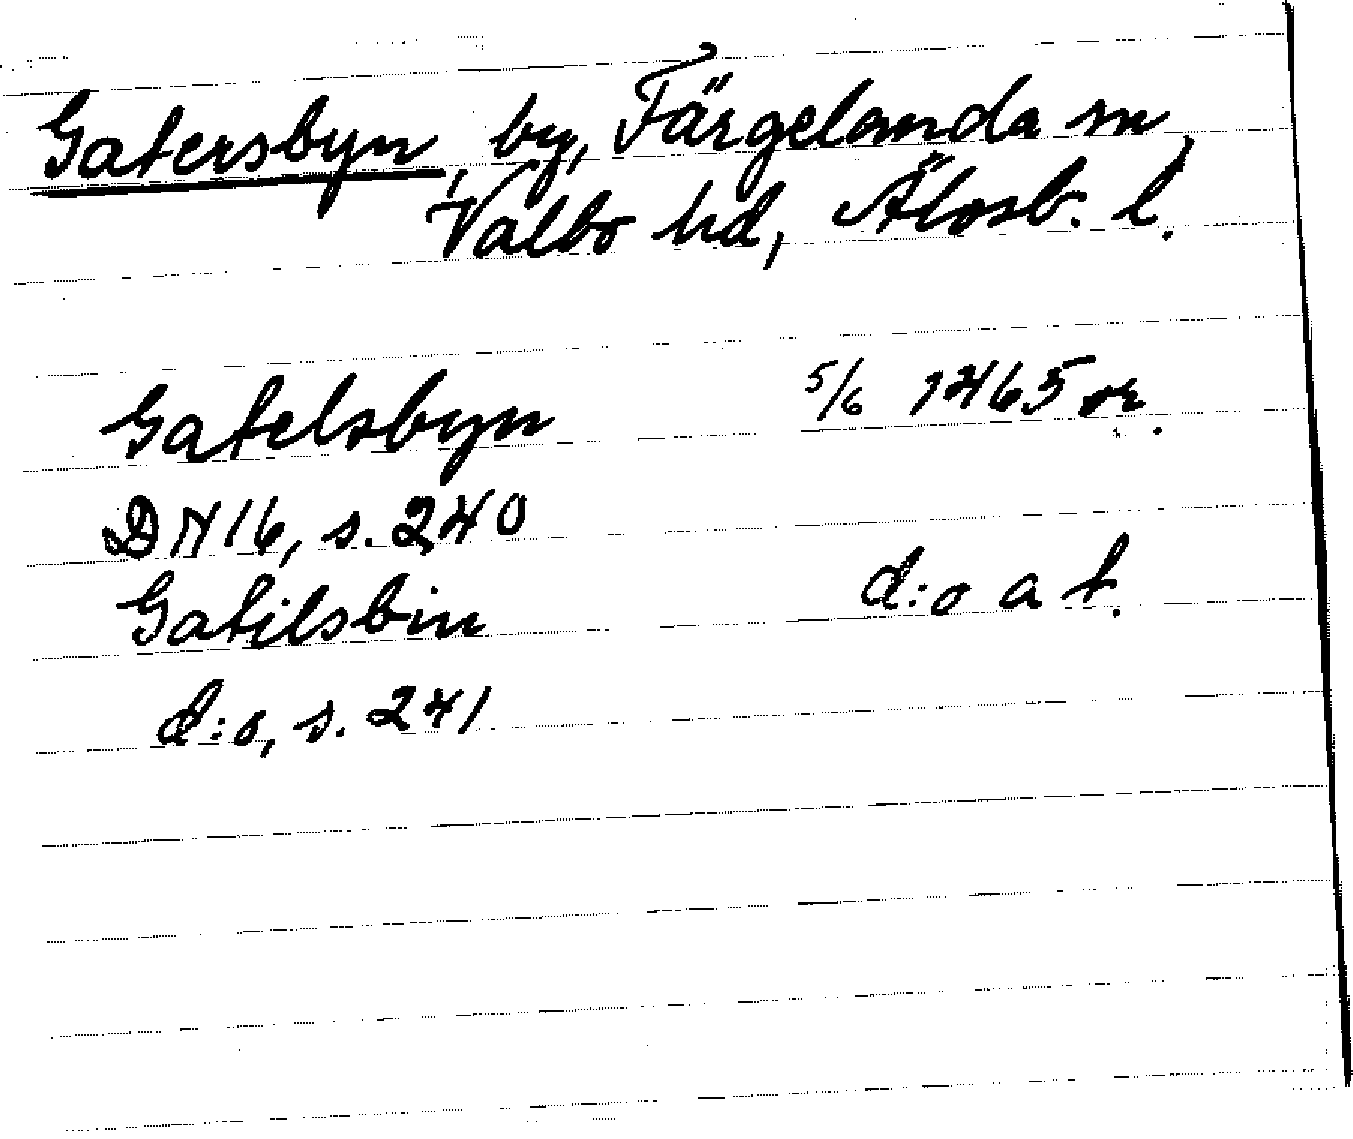 Gatersbyn, by, Färgelanda sn,
Valbo hd, Älvsb. l.
Gatelsbyn 5/6 1465 or.
DN 16, s. 240
Gatilsbin d:o a t.
d:o, s. 241